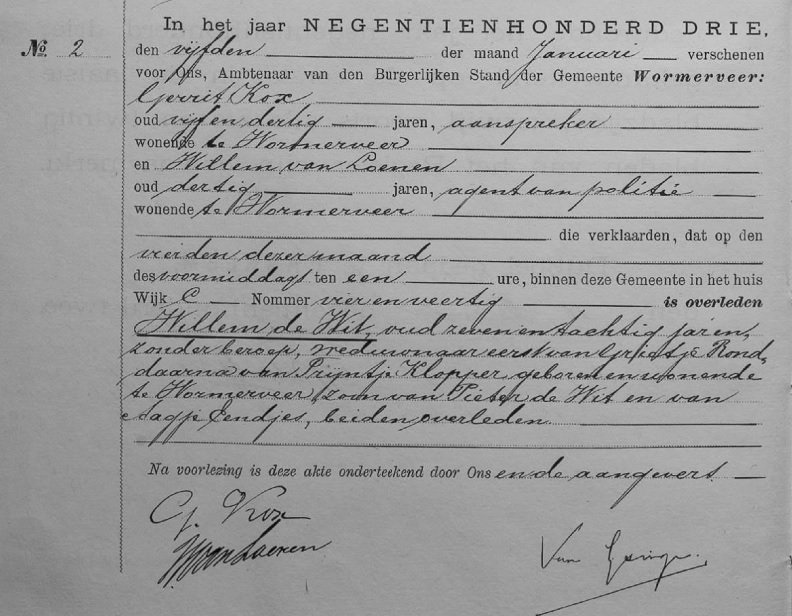 In het jaar NEGENTIENHONDERD DRIE,
No. 2
den vijfden der maand Januari verschenen
voor Ons, Ambtenaar van den Burgerlijken Stand der Gemeente Wormerveer:
Gerrit Kox,
oud vijf en dertig jaren, aanspreker
wonende te Wormerveer
en Willem van Loenen
oud dertig jaren, agent van politie
wonende te Wormerveer
die verklaarden, dat op den
dezer maand
des voormiddags ten een ure, binnen deze Gemeente in het huis
Wijk C Nommer vier en veertig is overleden
Willem de Wit, oud zeven en tachtig jaren,
zonder beroep, weduwnaar eerst van Grietje Rond,
daarna van Trijntje Klopper, geboren en wonende
te Wormerveer, zoon van Pieter de Wit en van
Aagje Eendjes, beiden overleden.
Na voorlezing is deze akte onderteekend door Ons en de aangevers
G. Kox
W. van Loenen
Van